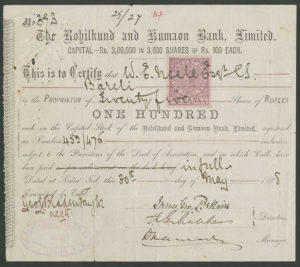 No. 393
25/27
The Rohilkund and Kumaon Bank, Limited.
CAPITAL—Rs. 3,00,000 IN 3,000 SHARES OF Rs. 100 EACH.
This is to Certify that W. E. Neale Esqr. C.S.
Bareli
is the PROPRIETOR of Seventy five Shares of RUPEES
ONE HUNDRED
each in the Capital Stock of the Rohilkund and Kumaon Bank, Limited, registered
as Numbers 453/476
inclusive
subject to the Provisions of the Deed of Association, and on which Calls have
been paid in full
Dated at Naini Tal, this 30th day of May
Examined & Entd.
Directors.
Manager.